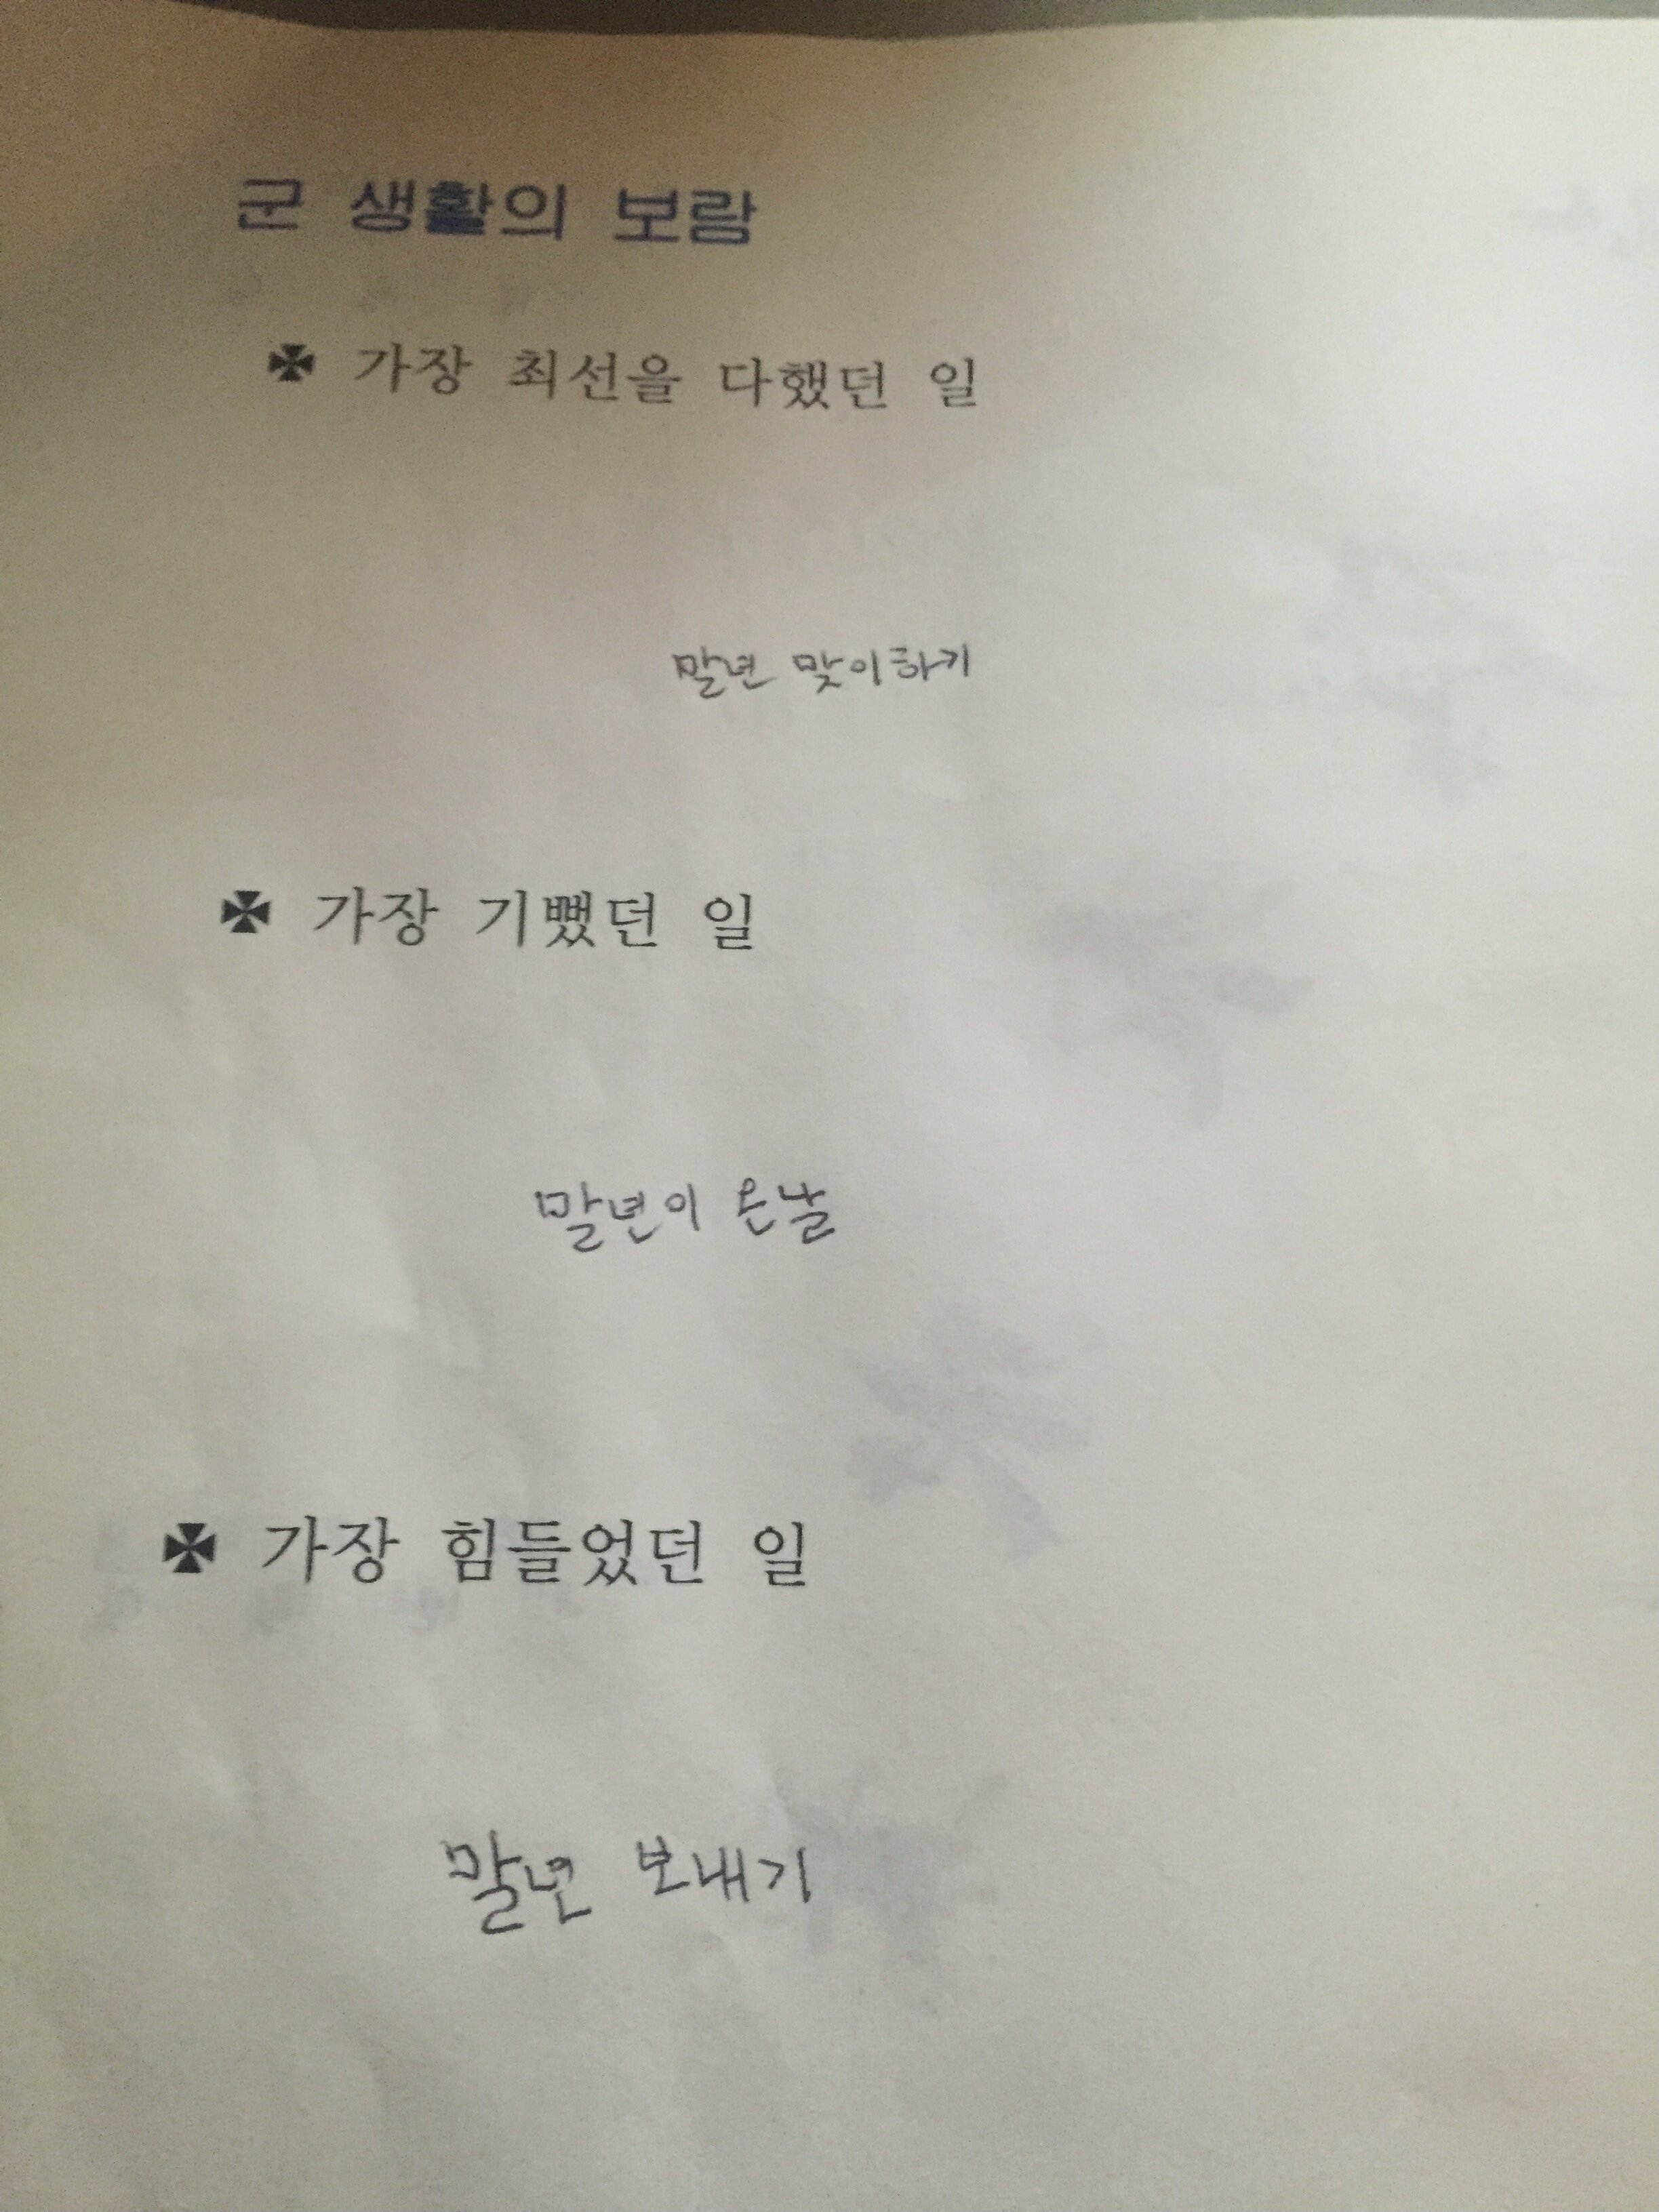 군 생활의 보람
✠ 가장 최선을 다했던 일
말년 맞이하기
✠ 가장 기뻤던 일
말년이 온날
✠ 가장 힘들었던 일
말년 보내기